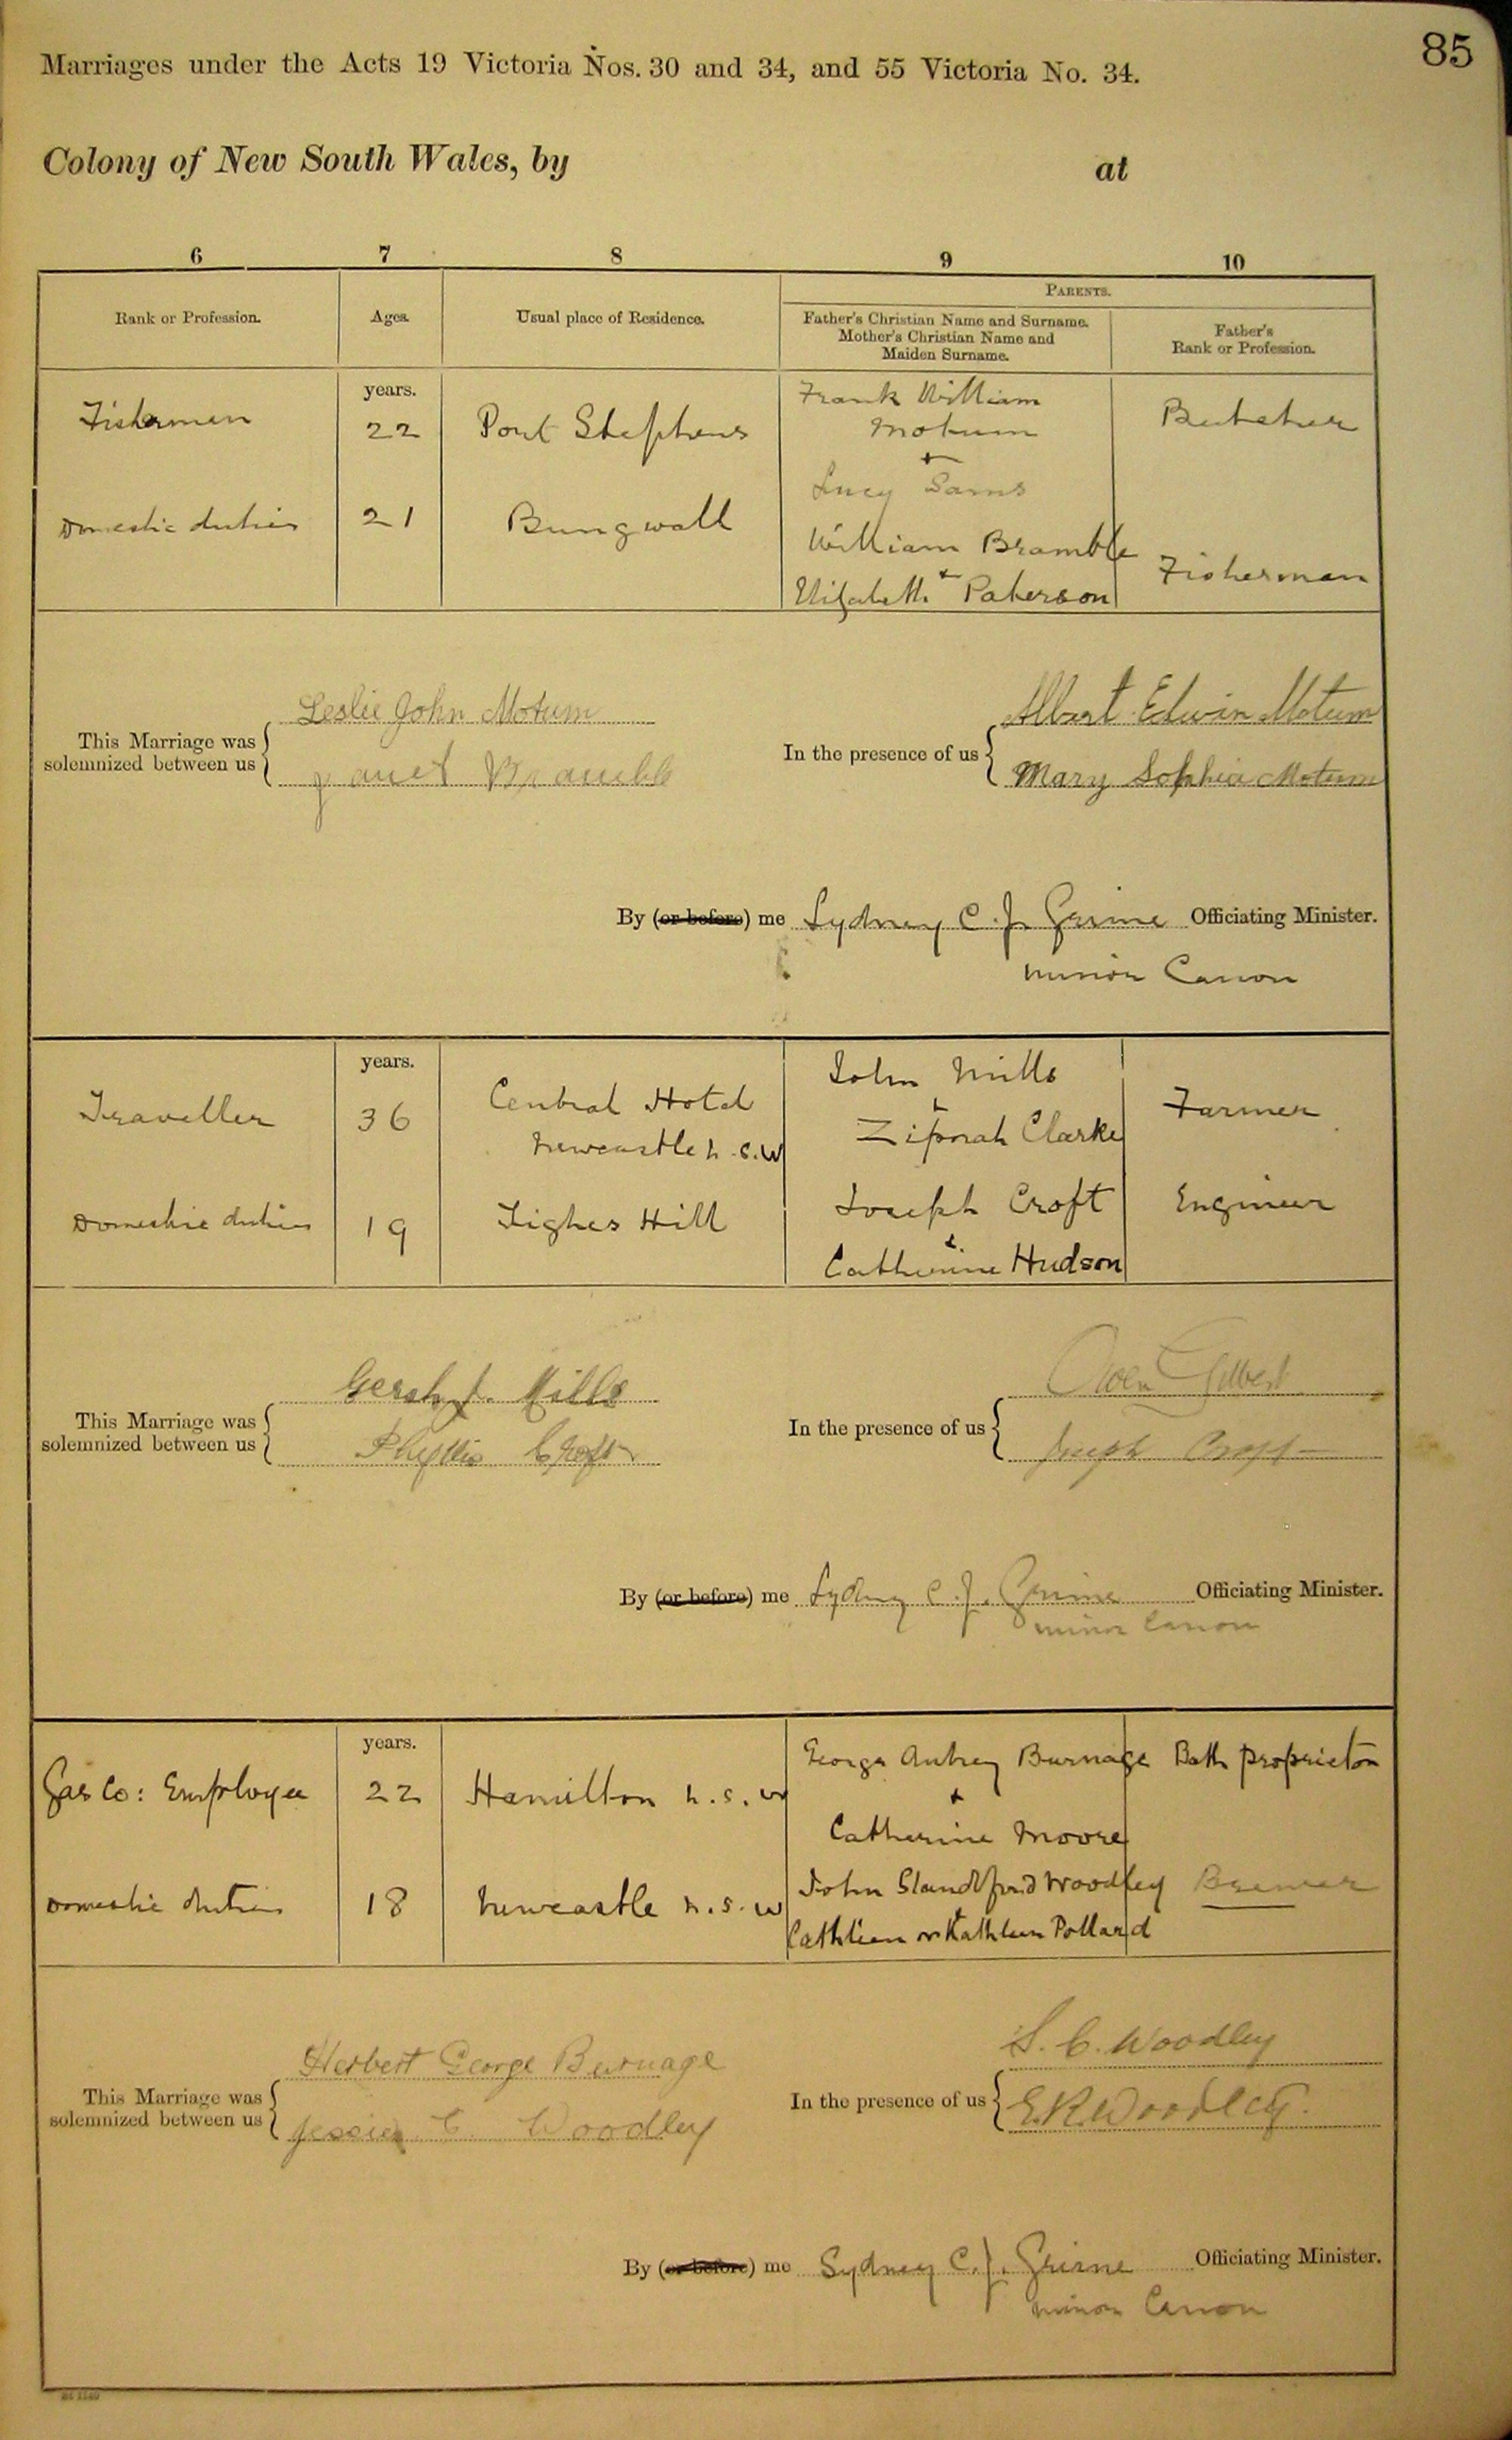 85
Marriages under the Acts 19 Victoria Nos. 30 and 34, and 55 Victoria No. 34.
Colony of New South Wales, by at
6 7 8 9 10
Rank or Profession. Ages. Usual place of Residence. PARENTS.
Father's Christian Name and Surname. Mother's Christian Name and Maiden Surname. Father's Rank or Profession.
years.
Fisherman 22 Port Stephens Frank William Motum Butcher
+
Lucy Sams
Domestic duties 21 Bungwall William Bramble Fisherman
+
Elizabeth Paterson
Leslie John Motum Albert Edwin Motum
This Marriage was solemnized between us In the presence of us
Janet Bramble Mary Sophia Motum
By (or before) me Sydney C. J. Grime Officiating Minister.
Minor Canon
years.
Traveller 36 Central Hotel John Mills Farmer
Newcastle N.S.W + Ziporah Clarke
Domestic duties 19 Tighes Hill Joseph Croft Engineer
+
Catherine Hudson
Gersh J. Mills Owen Gilbert
This Marriage was solemnized between us In the presence of us
Phyllis Croft Joseph Croft
By (or before) me Sydney C. J. Grime Officiating Minister.
Minor Canon
years.
Gas Co: Employee 22 Hamilton N.S.W George Aubrey Burnage Bath proprietor
+
Catherine Moore
Domestic duties 18 Newcastle N.S.W John Standford Woodley Brewer
+
Cathleen or Kathleen Pollard
Herbert George Burnage S. C. Woodley
This Marriage was solemnized between us In the presence of us
Jessie C. Woodley E.R. Woodley.
By (or before) me Sydney C. J. Grime Officiating Minister.
Minor Canon